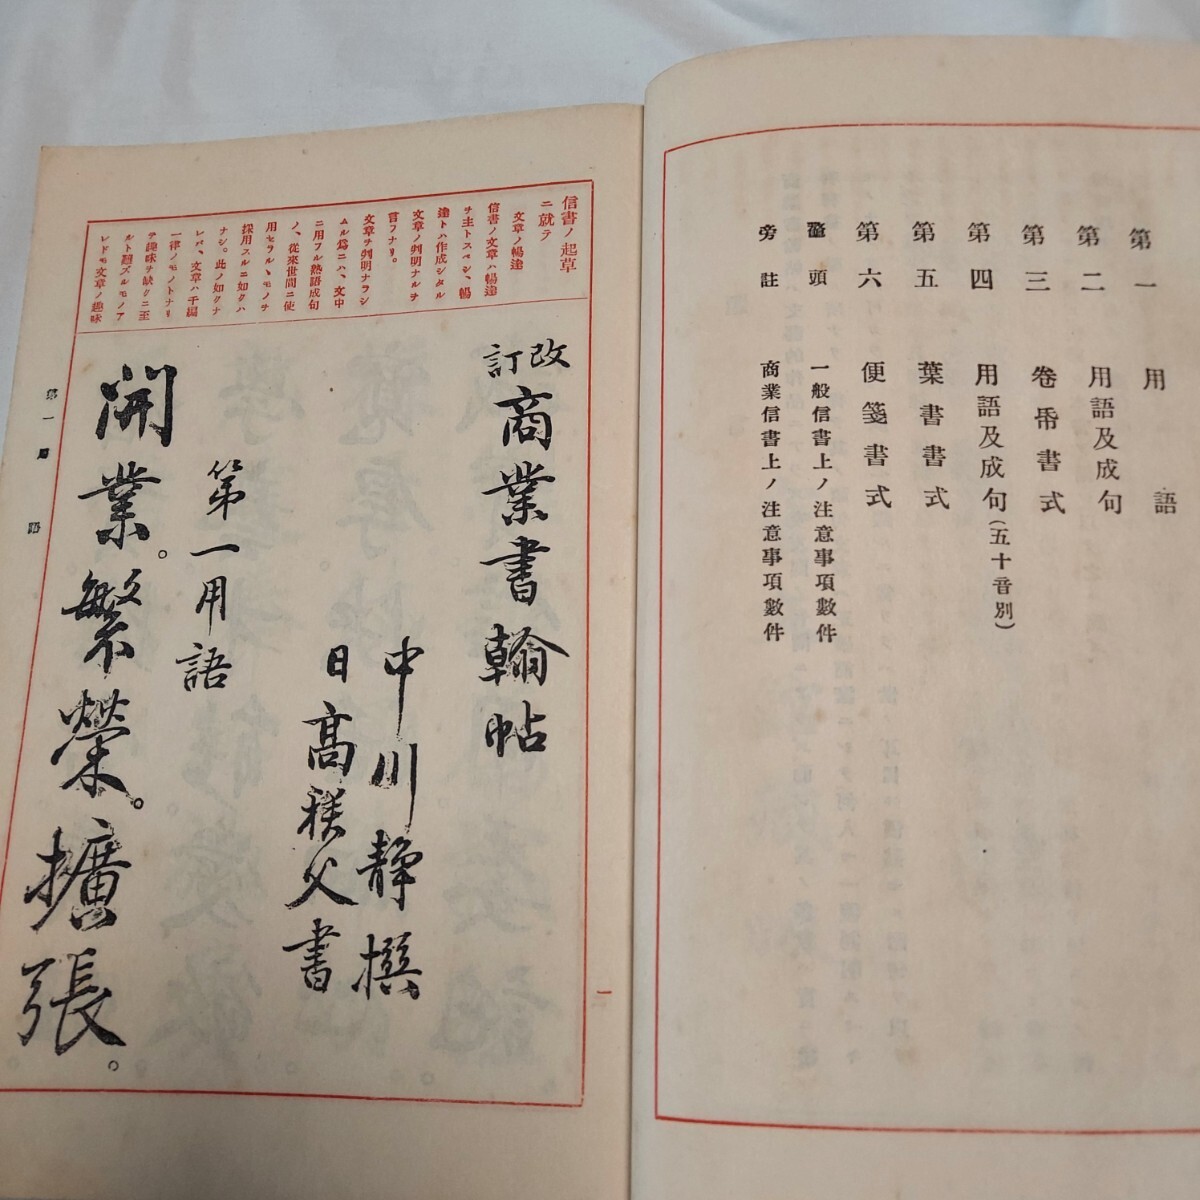 第一 用語
第二 用語及成句
第三 卷帋書式
第四 用語及成句(五十音別)
第五 葉書書式
第六 便箋書式
鼇頭 一般信書上ノ注意事項數件
旁註 商業信書上ノ注意事項數件
信書ノ起草
ニ就テ
文章ノ暢達
信書ノ文章ハ暢達
ヲ主トスベシ、暢
達トハ作成シタル
文章ノ判明ナルヲ
言フナリ。
文章ヲ判明ナラシ
ムル爲ニハ、文中
ニ用フル熟語成句
ノ、從來世間ニ使
用セラルヽモノヲ
採用スルニ如クハ
ナシ。此ノ如クナ
レバ、文章ハ千編
一律ノモノトナリ
テ趣味ヲ缺クニ至
ルト難ズルモノア
レドモ文章ノ趣味
改訂 商業書翰帖
中川靜撰
日高秩父書
第一用語
開業。繁榮。擴張。
第一 用 語
一